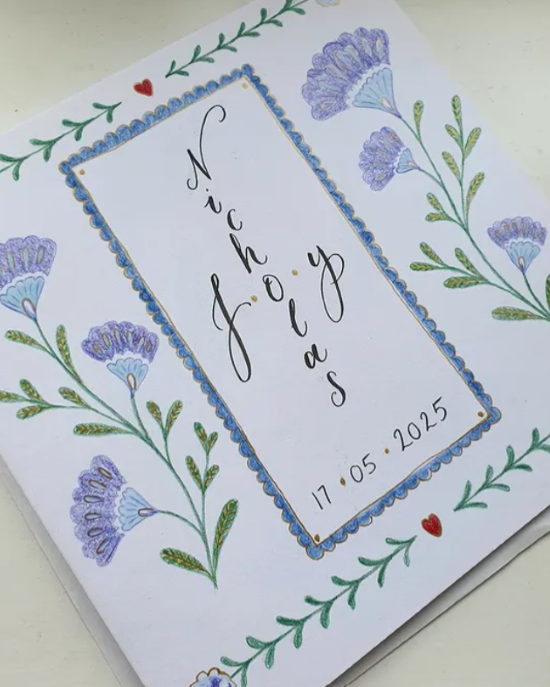 Nicholas
Joy
17 • 05 • 2025